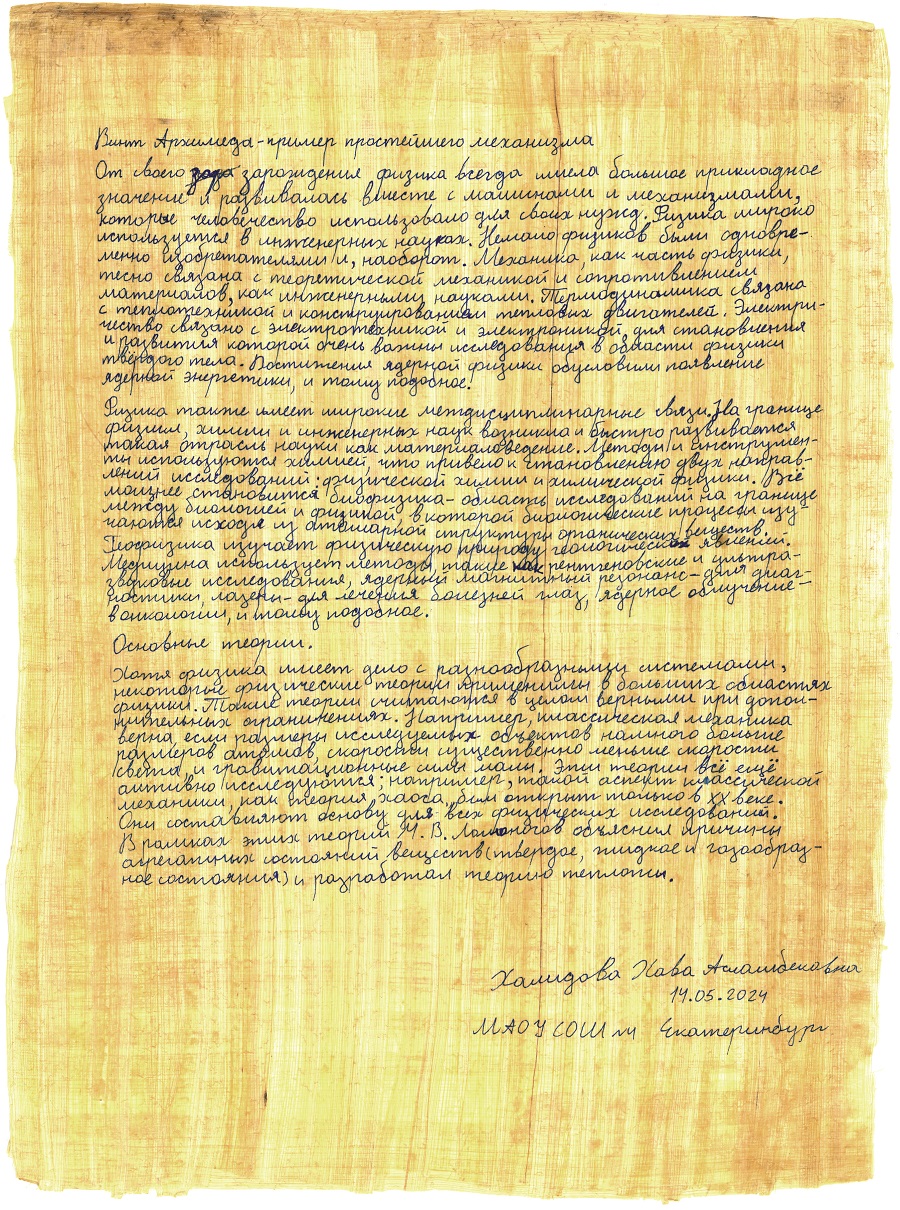 Винт Архимеда - пример простейшего механизма
От своего зарождения физика всегда имела большое прикладное
значение и развивалась вместе с машинами и механизмами,
которые человечество использовало для своих нужд. Физика широко
используется в инженерных науках. Немало физиков были одновре-
менно изобретателями и, наоборот. Механика, как часть физики,
тесно связана с теоретической механикой и сопротивлением
материалов, как инженерными науками. Термодинамика связана
с теплотехникой и конструированием тепловых двигателей. Электри-
чество связано с электротехникой и электроникой, для становления
и развития которой очень важны исследования в области физики
твёрдого тела. Достижения ядерной физики обусловили появление
ядерной энергетики, и тому подобное.
Физика также имеет широкие междисциплинарные связи. На границе
физики, химии и инженерных наук возникла и быстро развивается
такая отрасль науки как материаловедение. Методы и инструмен-
ты используются химией, что привело к становлению двух направ-
лений исследований: физической химии и химической физики. Всё
мощнее становится биофизика - область исследований на границе
между биологией и физикой, в которой биологические процессы изу-
чаются исходя из атомарной структуры органических веществ.
Геофизика изучает физическую природу геологических явлений.
Медицина использует методы, такие как рентгеновские и ультра-
звуковые исследования, ядерный магнитный резонанс - для диаг-
ностики, лазеры - для лечения болезней глаз, ядерное облучение -
в онкологии, и тому подобное.
Основные теории.
Хотя физика имеет дело с разнообразными системами,
некоторые физические теории применимы в больших областях
физики. Такие теории считаются в целом верными при допол-
нительных ограничениях. Например, классическая механика
верна, если размеры исследуемых объектов намного больше
размеров атомов, скорости существенно меньше скорости
света, и гравитационные силы малы. Эти теории всё ещё
активно исследуются; например, такой аспект классической
механики, как теория хаоса, был открыт только в XX веке.
Они составляют основу для всех физических исследований.
В рамках этих теорий М. В. Ломоносов объяснил причины
агрегатных состояний веществ (твердое, жидкое и газообраз-
ное состояния) и разработал теорию теплоты.
Халидова Хава Асламбековна
14.05.2024
МАОУ СОШ Екатеринбург